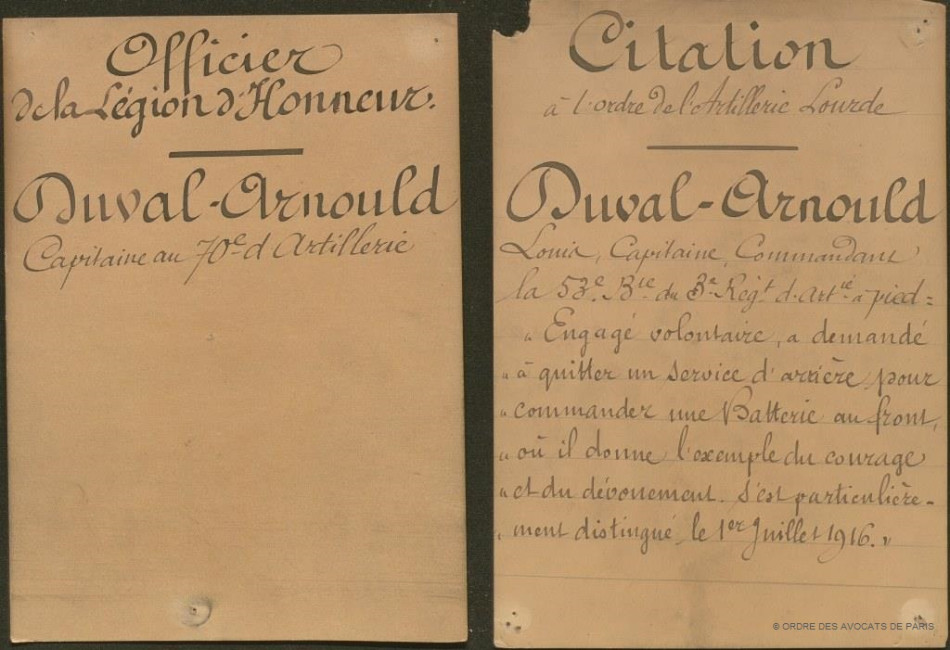 Officier
de la Légion d'Honneur.
Duval-Arnould
Capitaine au 70e d'Artillerie
Citation
à l'ordre de l'Artillerie Lourde
Duval-Arnould
Louis, Capitaine, Commandant
la 53e. Bie du 3e Regt d'Artie à pied =
" Engagé volontaire, a demandé
" à quitter un service d'arrière pour
" commander une Batterie au front,
" où il donne l'exemple du courage
" et du dévouement. S'est particulière-
" ment distingué le 1er Juillet 1916. "
© ORDRE DES AVOCATS DE PARIS